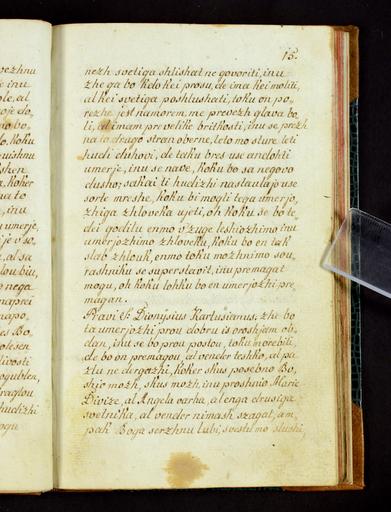 15.
nezh svetiga shlishat ne govoriti, inu
zhe ga bo kdo kei prosu, de ima kei moliti,
al kei svetiga poshlushati, toku on po,
rezhe jest namorem, me prevezh glava bo,
li, al imam pr velike britkosti, inu se prezh
na to drugo stran oberne, leto mo sture leti
hudi duhovi, de taku bres use andohti
umerje, inu se nave, koku bo sa negovo
dusho; sakai ti hudizhi nastaulajo use
sorte mreshe, koku bi mogli tega umerjo,
zhiga zhloveka ujeti, oh koku se bo te,
dei godilu enmo v'zuge leshiozhimo inu
umerjozhimo zhloveku, koku bo en tak
slab zhlouk, enmo toku mozhnimo sou,
rashniku se superstavit, inu premagat
mogu, oh koku lohku bo en umerjozhi pre,
magan.
Pravi S. Dionysius Kartusianus; zhe bo
ta umerjozhi prou dobru is oroshjam ob,
dan, inu se bo prou postou, toku morebiti,
de bo on premagou, al vender teshko, al pa
zlu ne dergazhi, koker skus posebno Bo,
shjo mozh, skus mozh, inu proshnio Marie
Divize, al Angela varha, al enga drusiga
svetnika, al vender nimash szagat, am,
pak Boga serzhnu lubi, svestu mo slushi,